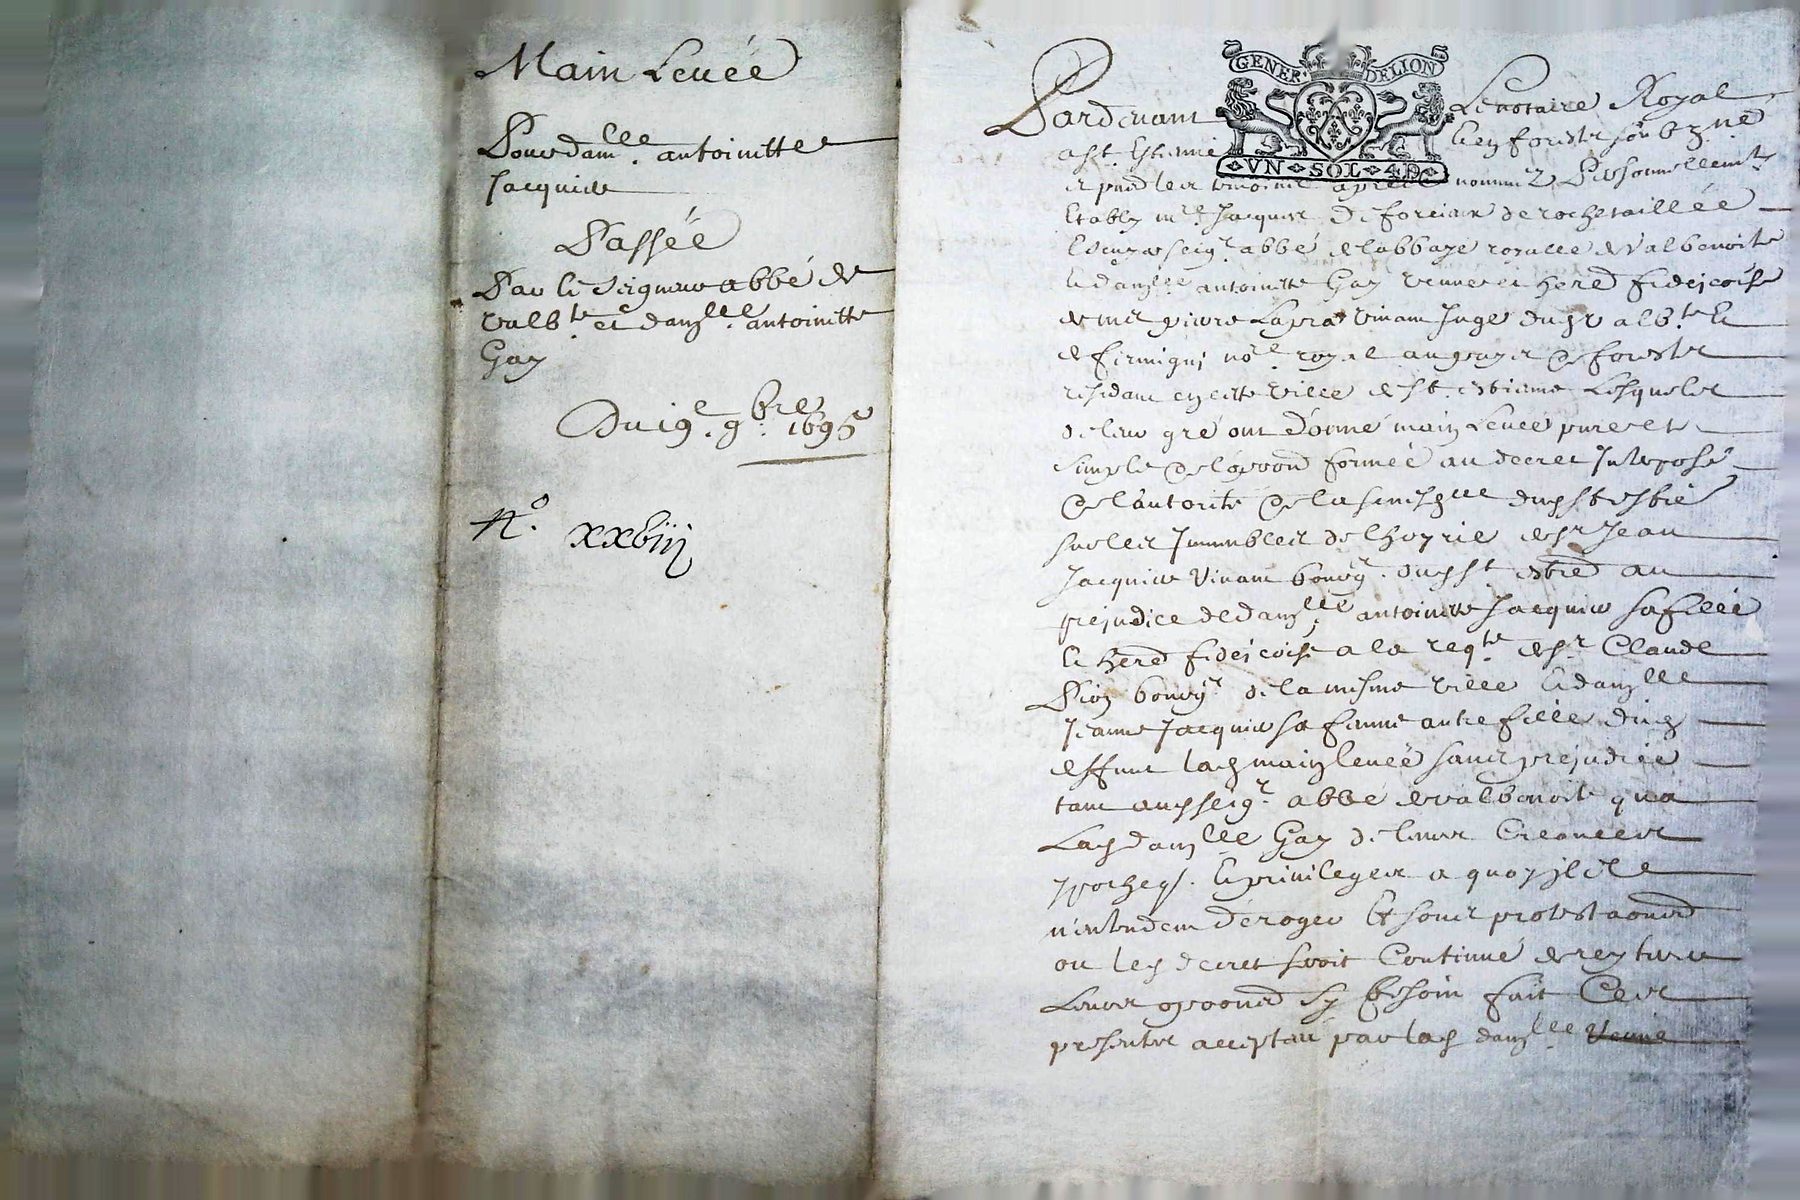 Main Leuée
Pour dam.lle antoinette
Jacquier
Passée
Par le Seigneur abbé de
valb.te et dam.lle antoinette
Gay
Du 19.e 9.bre 1695
N.o xxbiij
GENER. DELION
VN SOL 4D
Pardeuant Le notaire Royal
a St. Estienne en forestz soubzne
et pnd les tesmoins apres nommez Personnellemt
Estably mre Jacques de forciaux de rochetaillée
seigr abbé de labbaye royalle de valbenoite
et damlle antoinette Gay veuue et hered fideicoise
de mre pierre Lapra viuant Juge dud valb.te et
de firmigni nore royal au pays de forestz
residant en cette ville de St. estienne Lesquels
de leur gré ont donné main Leuée pure et
simple de loppon formée au decret Interposé
de l'autorité de la senesch dud st estie
sur les Immeubles de lhoyrie de sr Jean
Jacquier viuant bourgr. dud st. estie au
prejudice de damlle antoinette Jacquier sa fille
et hered fideicoise a la reqte de sr Claude
bourgr de la mesme ville et damlle
Jeanne Jacquier sa femme autre fille dud
deffunt lad main leuée sans prejudice
tant aud seigr. abbé de valbenoite qua
Lad damlle Gay de leurs Creances
ypotheqs. et priuileges a quoy ils
n'entendent déroger Et sous protestaons
ou led decret seroit Continué de
Leurs oppoons sy besoin fait Ces
presentes acceptant par lad damlle